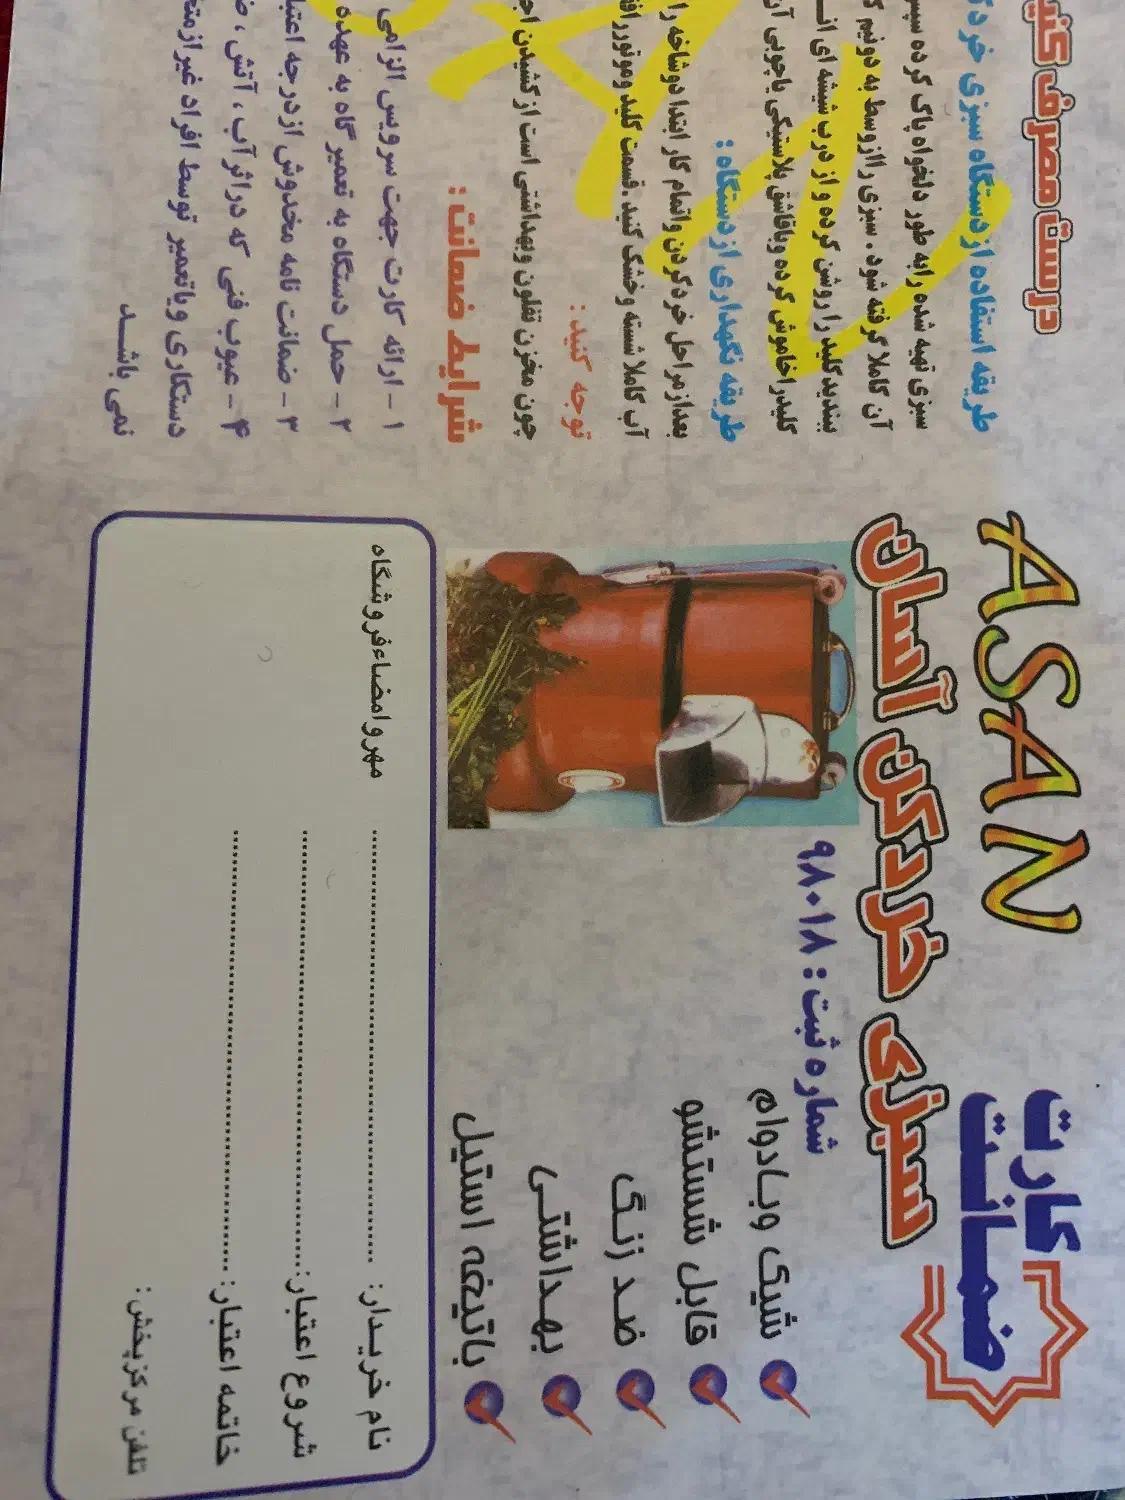 کارت
ضمانت
ASAN
سبزی خردکن آسان
شماره ثبت : ۹۸۰۱۸
شیک وبادوام
قابل شستشو
ضد زنگ
بهداشتی
باتیغه استیل
نام خریدار: مهروامضاءفروشگاه
شروع اعتبار:
خاتمه اعتبار:
تلفن مرکزپخش:
درست مصرف کنیم
طریقه استفاده ازدستگاه سبزی خرد
سبزی تهیه شده رابه طور دلخواه پاک کرده سپس
آن کاملا گرفته شود . سبزی راازوسط به دونیم
ببندیدکلید را روشن کرده و از درب شیشه ای
کلیدراخاموش کرده وباقاشق پلاستیکی یاچوبی آن
طریقه نگهداری ازدستگاه :
بعدازمراحل خردکردن واتمام کار ابتدا دوشاخه را
آب کاملا شسته وخشک کنید .قسمت کلید وموتورر
توجه کنید :
چون مخزن تفلون وبهداشتی است ازکشیدن
شرایط ضمانت :
۱ - ارائه کارت جهت سرویس الزامی
۲ - حمل دستگاه به تعمیرگاه به عهده
۳ - ضمانت نامه مخدوش ازدرجه
۴ - عیوب فنی که دراثرآب ، آتش ،
دستکاری ویاتعمیر توسط افراد غیراز
نمی باشد